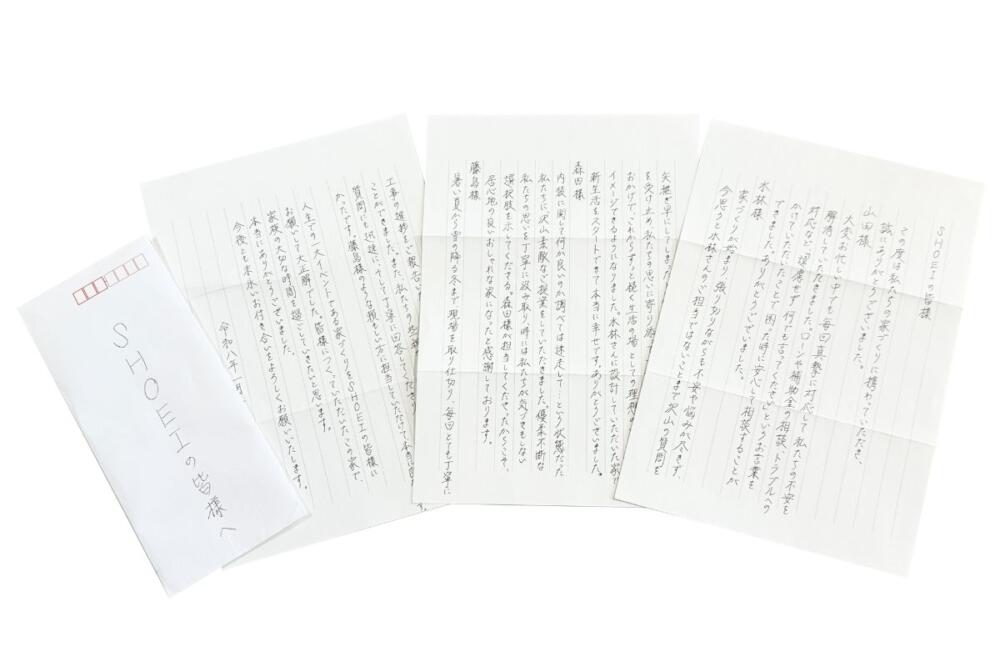 SHOEIの皆様
この度は私たちの家づくりに携わっていただき、
誠にありがとうございました。
山田様
大変お忙しい中でも毎回真摯に対応して私たちの不安を
解消していただきました。ローンや補助金の相談、トラブルへの
対応など嫌な顔せず、何でも言ってくださいというお言葉を
かけていただいたことで、困った時に安心して相談することが
できました。ありがとうございました。
水林様
家づくりが始まり、張り切りながらも不安や悩みが尽きず、
今思うと水林さんのご担当ではないことまで沢山の質問を
矢継ぎ早にしてしまい
を受け止め私たちの思いに寄り添
おかげで、これからずっと続く生活の場としての理想
イメージできるようになりました。水林さんに設計していただいた家で
新生活をスタートできて本当に幸せです。ありがとうございました。
森田様
内装に関して何が良いのか調べては迷走して…という状態だった
私たちに沢山素敵な提案をしていただきました。優柔不断な
私たちの思いを丁寧に汲み取り、時には私たちが気づきもしない
選択肢を示してくださる。森田様が担当してくださったからこそ、
居心地の良いおしゃれな家になったと感謝しております。
藤島様
暑い夏から雪の降る冬まで現場を取り仕切り、毎回とても丁寧に
工事の進捗をご報告い
ことができました。また、私たちの
質問にも迅速に、そして丁寧に回答してくださり
かったです。藤島様のような頼もしい方に担当していただけて本当に
人生での一大イベントである家づくりをSHOEIの皆様に
お願いして大正解でした。皆様につくっていただいたこの家で
家族の大切な時間を過ごしていきたいと思います。
本当にありがとうございました。
今後とも末永いお付き合いをよろしくお願いいたします。
令和八年一月
SHOEIの皆様へ